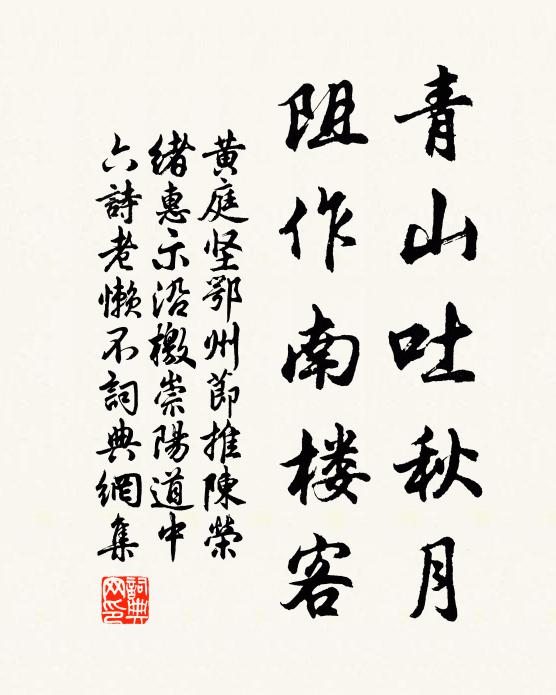 青山吐秋月
阻作南楼客
黄庭坚鄂州節推陳榮
緒惠示沿檄崇陽道中
六詩老懒不詞典網集
詞典网印